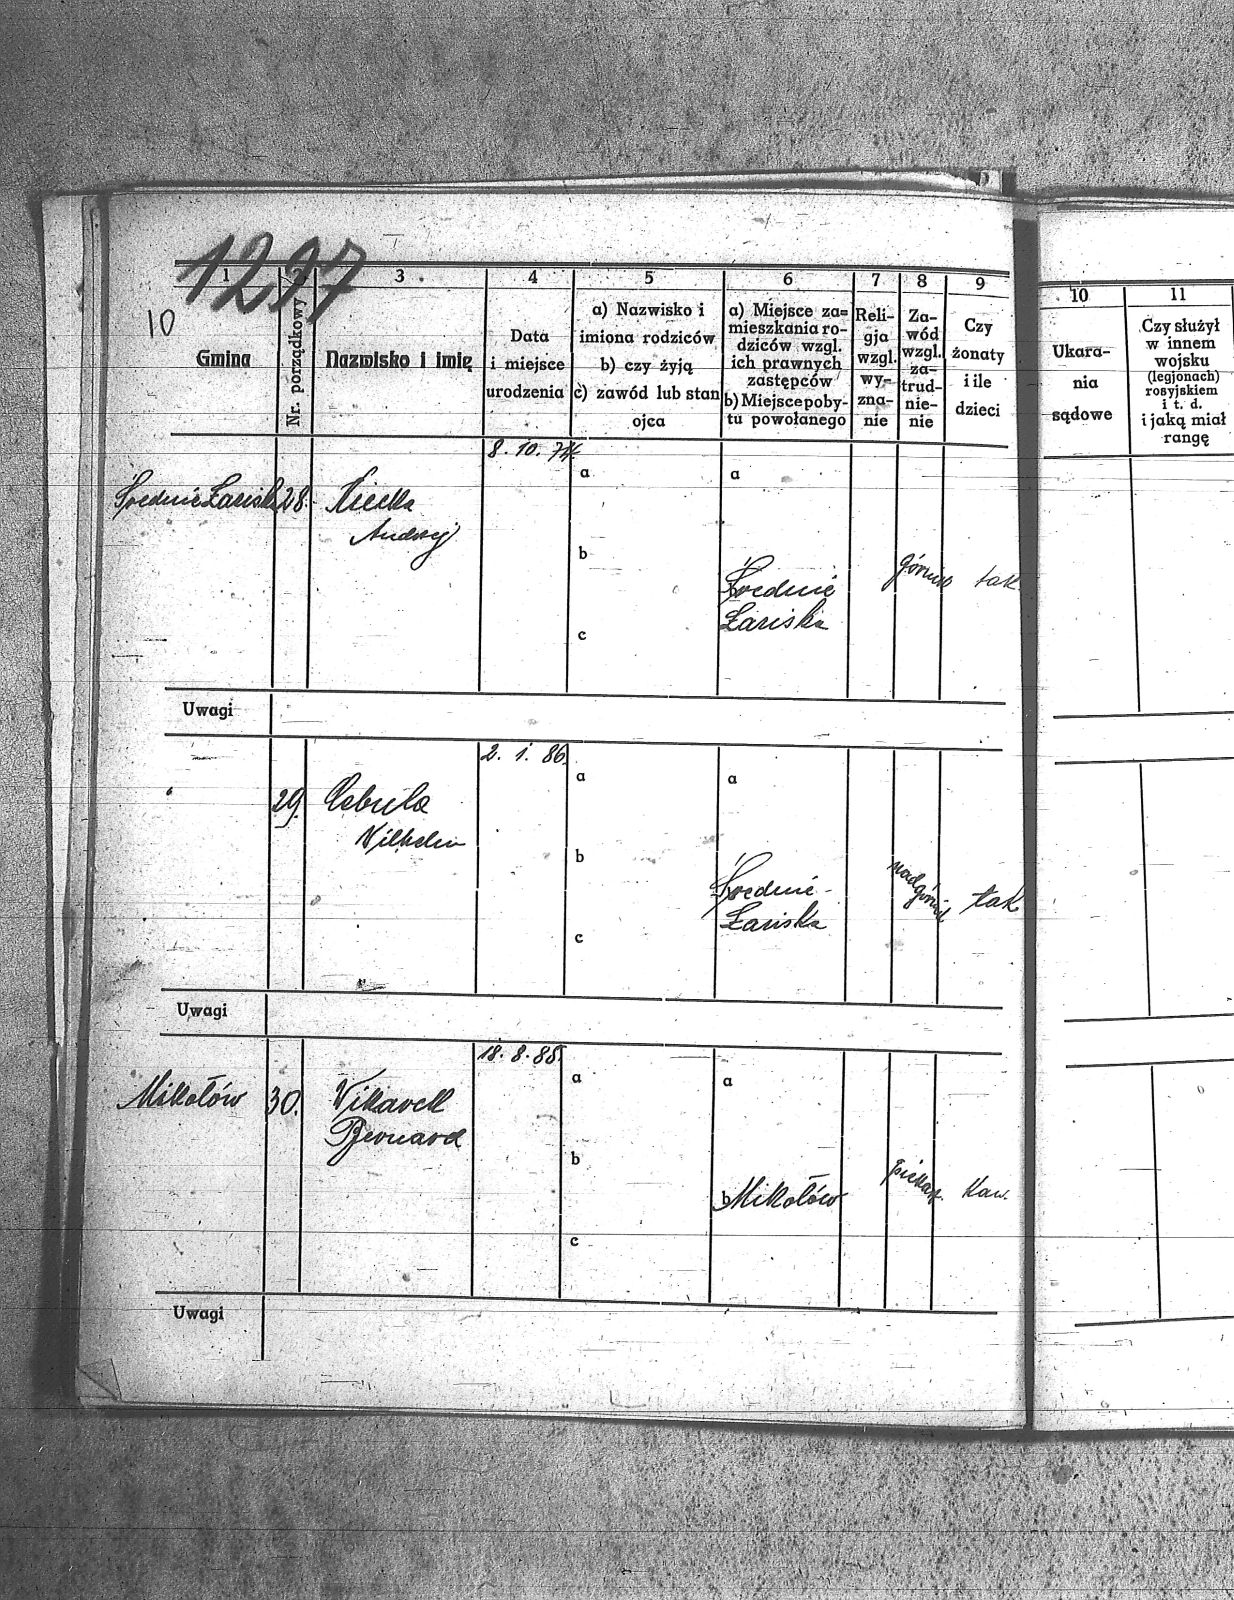 1297
10
1 2 3 4 5 6 7 8 9
Gmina
Nr. porządkowy
Nazwisko i imię
Data
i miejsce
urodzenia
a) Nazwisko i
imiona rodziców
b) czy żyją
c) zawód lub stan
ojca
a) Miejsce za=
mieszkania ro-
dziców wzgl.
ich prawnych
zastępców
b) Miejsce poby-
tu powołanego
Reli-
gja
wzgl.
wy-
zna-
nie
Za-
wód
wzgl.
za-
trud-
nie-
nie
Czy
żonaty
i ile
dzieci
10 11
Ukara-
nia
sądowe
Czy służył
w innem
wojsku
(legjonach)
rosyjskiem
i t. d.
i jaką miał
rangę
8. 10. 74.
a a
Średnie Łaziska 28.
Andrzej
b
Średnie
Łaziska
górnik tak
c
Uwagi
2. 1. 86.
a a
" 29. Cebula
Wilhelm
b
Średnie
Łaziska
nadgórnik tak
c
Uwagi
18. 8. 88.
a a
Mikołów 30. Vikarek
Bernard
b
b Mikołów
piekarz kaw.
c
Uwagi